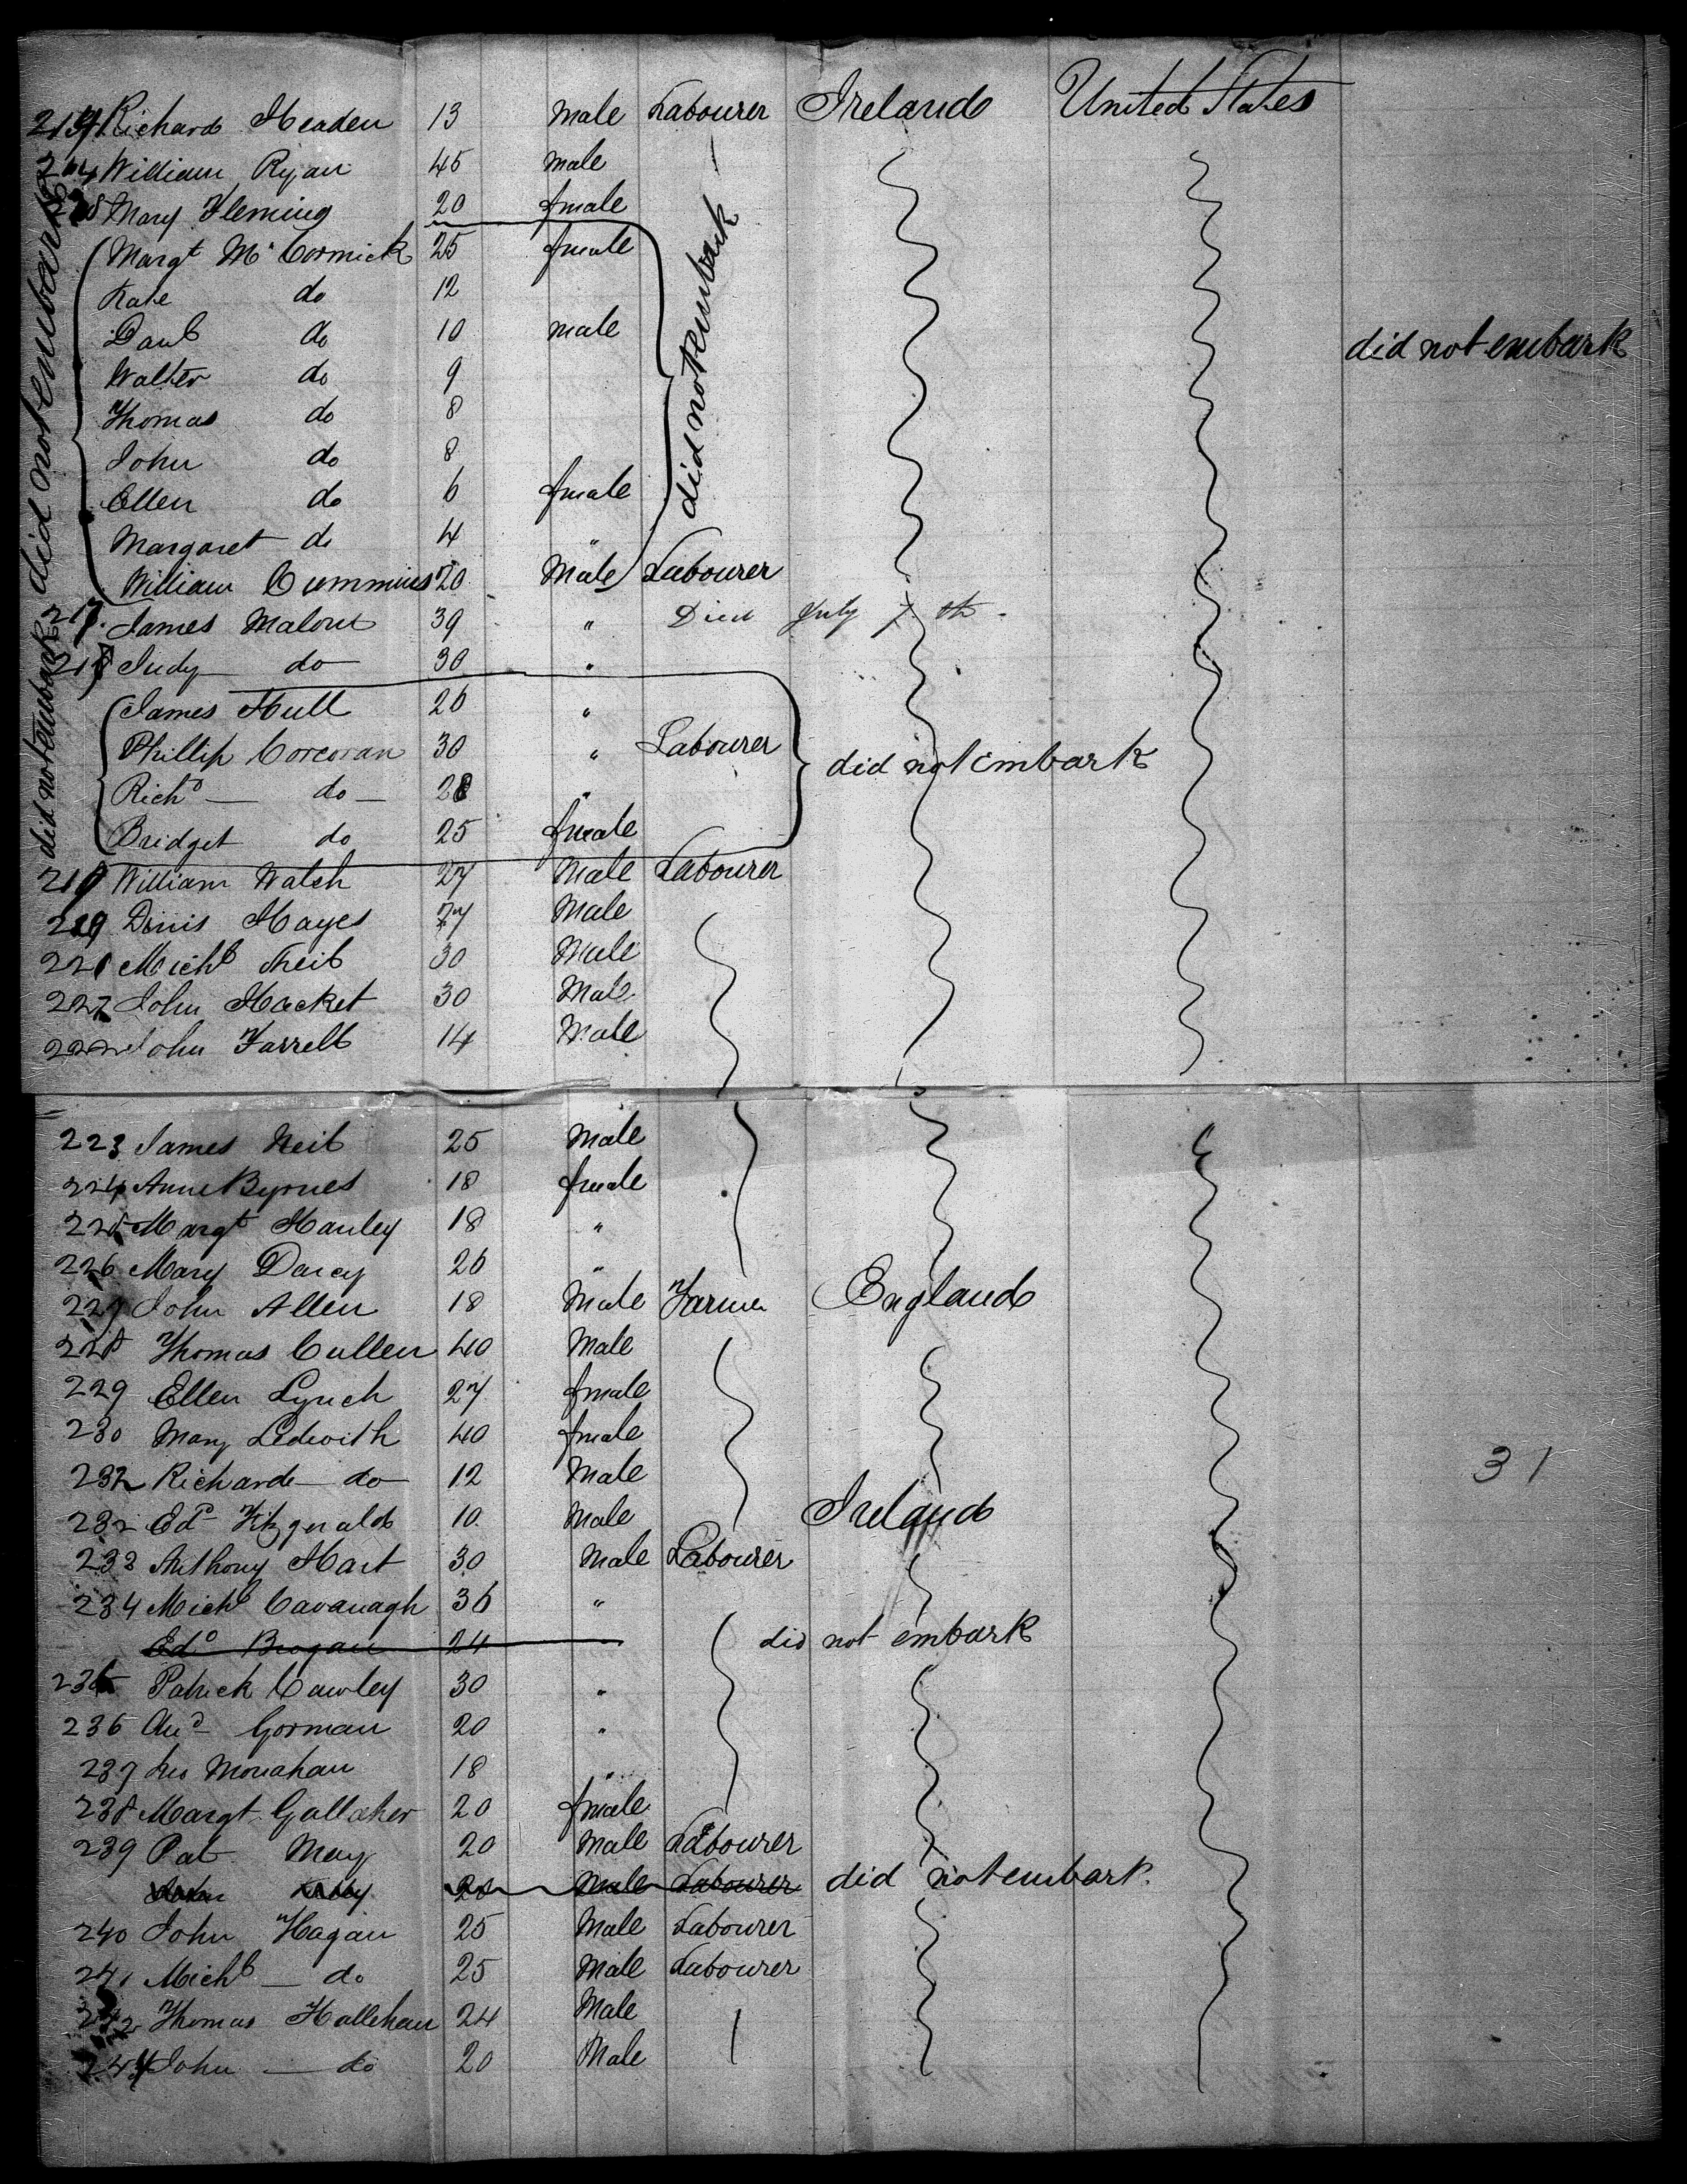 Richard Headen 13 Male Labourer Ireland United States
William Ryan 45 male
Mary Fleming 20 female
Margt McCormick 25 female
Kate do 12
Danl do 10 male
did not embark
Walter do 9
Thomas do 8
John do 8
Ellen do 6 female
Margaret do 4 "
William Cummins 20 Male Labourer
did not embark
did not embark
217 James Malone 39 " Died July 7th
Judy do 30 "
James Hull 26 "
Phillip Corcoran 30 " Labourer did not embark
Richd do 28 "
Bridget do 25 female
did not embark
William Walsh 27 Male Labourer
Dinis Hayes Male
220 Michl Neil 30 Male
John Hacket 30 Male
222 John Farrell 14 Male
223 James Neil 25 Male
224 Anne Byrnes 18 female
225 Margt Hanley 18 "
226 Mary Darcy 26 "
227 John Allen 18 Male Farmer England
228 Thomas Cullen 40 Male
229 Ellen Lynch 27 female
230 Mary Ledwith 40 female
Richard do 12 Male
232 Edd Fitzgerald 10 Male Ireland
233 Anthony Hart 30 Male Labourer
234 Michl Cavanagh 36 "
Edd Brogan 24 did not embark
235 Patrick Cawley 30 "
236 And Gorman 20 "
237 Monahan 18 "
238 Margt Gallaher 20 female
239 Pat May 20 Male Labourer
20 Male Labourer did not embark
240 John Hagan 25 Male Labourer
241 Michl do 25 Male Labourer
242 Thomas Hallehan 24 Male
John do 20 Male
31